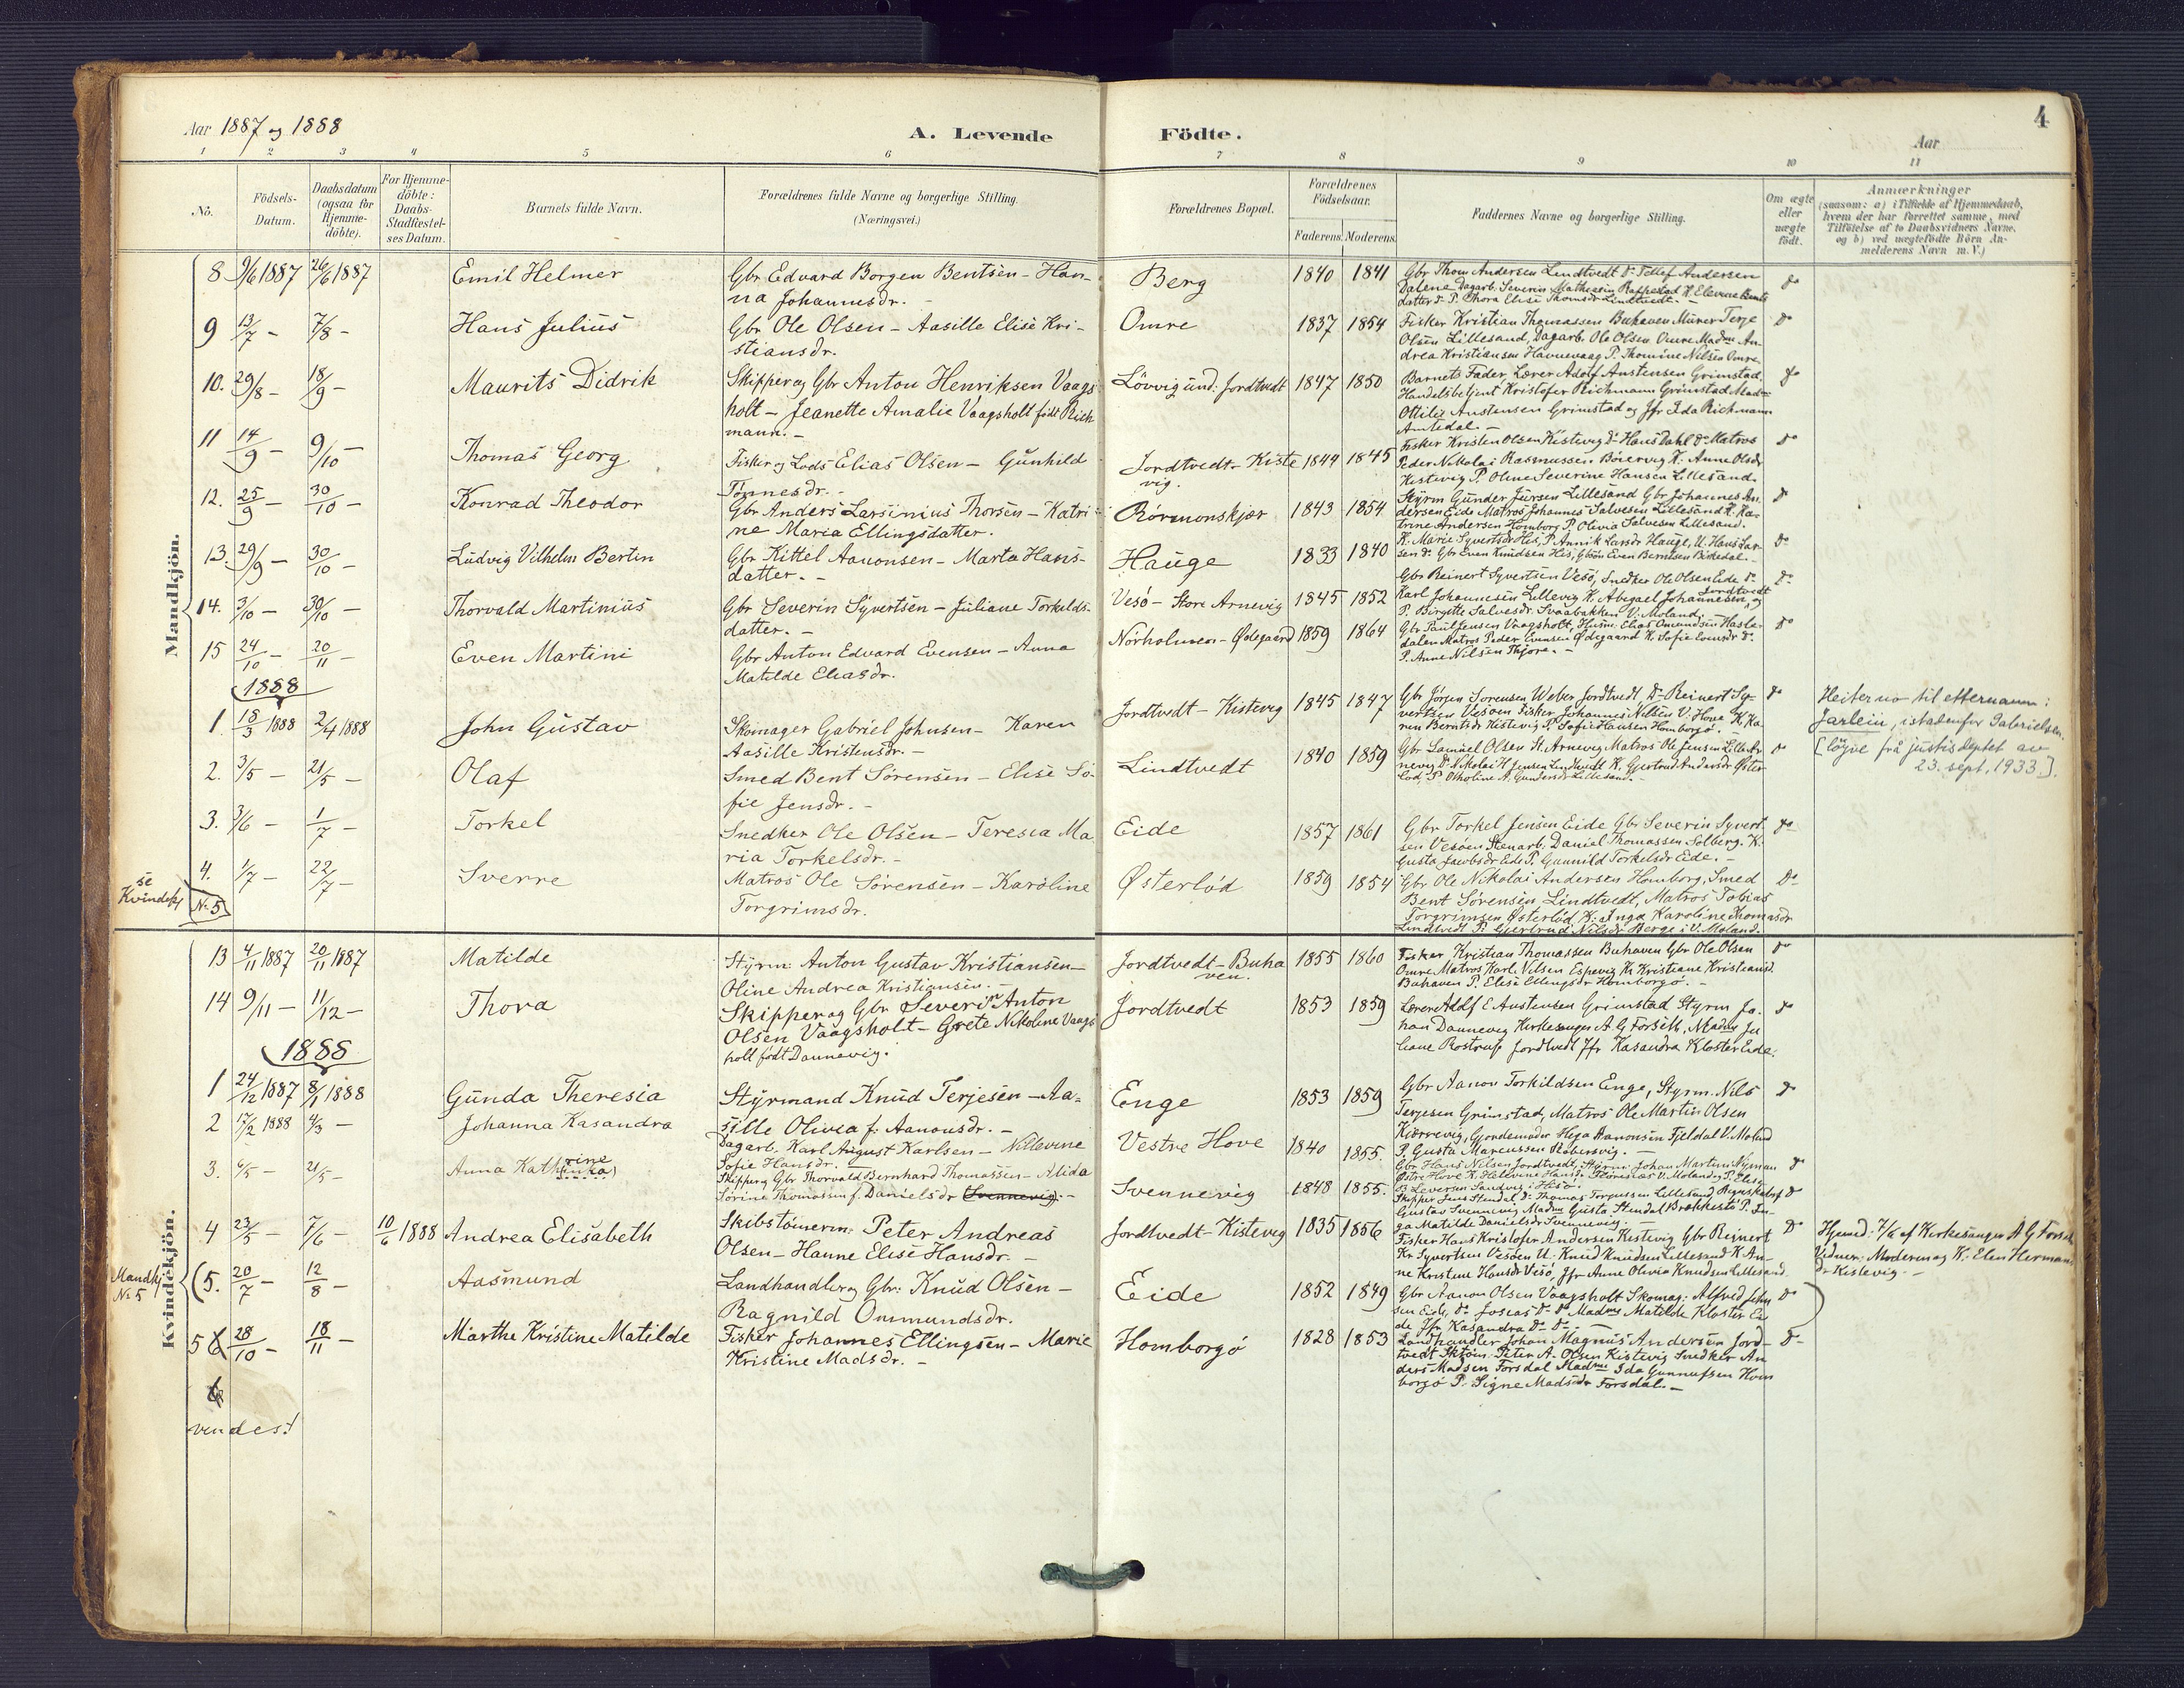 4
Aar 1887 og 1888
A. Levende Födte.
Aar
1 2 3 4 5 6 7 8 9 10 11
Nö.
Födsels-Datum.
Daabsdatum (ogsaa for Hjemme-döbte).
For Hjemme-döbte: Daabs-Stadfæstel-ses Datum.
Barnets fulde Navn.
Forældrenes fulde Navne og borgerlige Stilling.
(Næringsvei.)
Forældrenes Bopæl.
Forældrenes Födselsaar.
Faderens. Moderens.
Faddernes Navne og borgerlige Stilling.
Om ægte eller uægte födt.
Anmærkninger
(saasom: a) i Tilfælde af Hjemmedaab,
hvem der har forrettet samme, med
Tilföielse af to Daabsvidners Navne.
og b) ved uægtefödte Börn An-
melderens Navn m. V.)
Mandkjön.
8 9/6 1887 26/6 1887 Emil Helmer
Gbr Edvard Borgen Bentsen - Han-
na Johannesdr. -
Berg 1840 1841
Gbr Thom Andersen Lindtvedt Do Tellef Andersen
Dalene Dagarb. Severin Mathiesen K. Elevine Bents
datter Do P. Thora Elise Thomsdr Lindtvedt. -
9 13/7 - 7/8 - Hans Julius
Gbr Ole Olsen - Aasille Elise Kri-
stiansdr.
Omre 1837 1854
Fisker Kristian Thomassen Buhaven Murer Terje
Olsen Lillesand, Dagarb. Ole Olsen Omre Madm An-
drea Kristiansen Havnevaag P. Thomine Nilsen Omre
Do
10. 29/8 - 18/9 - Maurits Didrik
Skipper og Gbr Anton Henriksen Vaags
holt - Jeanette Amalie Vaagsholt födt Rich
mann. -
Lövvig und: Jordtvedt 1847 1850
Barnets Fader, Lærer Adolf Austensen Grimstad,
Handelsbetjent Kristofer Richmann Grimstad Madm
Ottilie Austensen Grimstad og Jfr Ida Richmann
Amtedal. -
11 14/9 - 9/10 - Thomas Georg
Fisker og Lods Elias Olsen - Gunhild
Tönnesdr. -
Jordtvedt - Kiste
vig. 1844 1845
Fisker Kristen Olsen Kistevig Do Hans Dahl Do Matros
Peder Nikolai Rasmussen Böiervig K. Anne Olsdr
Kistevig P. Oline Severine Hansen Lillesand.
Do
12. 25/9 - 30/10 - Konrad Theodor
Gbr Anders Larsinius Thorsen - Katri-
ne Maria Ellingsdatter.
Rörmonskjær 1843 1854
Styrm Gunder Jürsen Lillesand Gbr Johannes An-
dersen Eide Matros Johannes Salvesen Lillesand K. Ka-
trine Andersen Homborg P. Olivia Salvesen Lillesand.
Do
13. 29/9 - 30/10 - Ludvig Vilhelm Bertin
Gbr Kittel Aanonsen - Marta Hans-
datter. -
Hauge 1833 1840
K. Marie Syvertsdr His, P. Annik Larsdr Hauge, U. Hans Lar-
sen Do. Gbr Even Knudsen His, Gbsön Even Berntsen Birkedal. -
Do
14. 3/10 - 30/10 - Thorvald Martinius
Gbr Severin Syvertsen - Juliane Torkelds-
datter. -
Vesö - Store Arnevig 1845 1852
Gbr Reinert Syvertsen Vesö, Snedker Ole Olsen Eide Do
Karl Johannesen Lillevig K. Abegael Johannesen Jordtvedt og
P. Birgitte Salvesdr. Svaabakken V. Moland.
Do
15 24/10 - 20/11 - Even Martini
Gbr Anton Edvard Evensen - Anna
Matilde Eliasdr.
Nörholmen - Ødegaard 1859 1864
Gbr Paul Jensen Vaagsholt, Husm. Elias Omundsen Hasle-
dalen Matros Peder Evensen Ødegaard K. Sofie Evensdr Do.
P. Anne Nilsen Thjore. -
Do
1888
1. 18/3 1888 2/4 1888 John Gustav
Skomager Gabriel Johnsen - Karen
Aasille Kristensdr. -
Jordtvedt - Kistevig 1845 1847
Gbr Jörgen Sörensen Weber Jordtvedt Do Reinert Sy-
vertsen Vesöen Fisker Johannes Nilsen V. Hove K. Ka-
ren Berntsdr Kistevig P. Sofie Hansen Homborgö. -
Do
Heiter no til etternavn:
Jarlein, istadenfor Gabrielsen.
[löyve frå justisdeptet av
23. sept. 1933.].
2. 3/5 - 21/5 - Olaf
Smed Bent Sörensen - Elise So-
fie Jensdr. -
Lindtvedt 1840 1859
Gbr Samuel Olsen St. Arnevig Matros Ole Jensen Lille Ar
nevig Do Nikolai H Jensen Lindtvedt K. Gjertrud Andersdr Øster
lod, P. Otholine A. Gundersdr Lillesand. -
Do
3. 3/6 - 1/7 - Torkel
Snedker Ole Olsen - Teresia Ma
ria Torkelsdr. -
Eide 1857 1861
Gbr Torkel Jensen Eide Gbr Severin Syvert
sen Vesöen Stenarb. Daniel Thomassen Solberg. K.
Gusta Jacobsdr Eide P. Gunnild Torkelsdr Eide. -
Do
4. 1/7 - 22/7 - Sverre
Matros Ole Sörensen - Karoline
Torgrimsdr.
Østerlöd 1859 1854
Gbr. Ole Nikolai Andersen Homborg, Smed
Bent Sörensen, Lindtvedt, Matros Tobias
Torgrimsen Østerlöd K: Inga Karoline Thomasdr
Lindtvedt P. Gjertrud Nilsdr Berge i V. Moland.
Do
se Kvindekj No 5
Kvindekjön.
13 4/11 1887 20/11 1887 Matilde
Styrm: Anton Gustav Kristiansen -
Oline Andrea Kristiansen. -
Jordtvedt - Buha
ven. 1855 1860
Fisker Kristian Thomassen Buhaven Gbr Ole Olsen
Omre Matros Karl Nilsen Espevig K. Kristiane Kristiansd.
Buhaven P. Elise Ellingsdr Homborgö. -
Do
14 9/11 - 11/12 - Thora
Skipper og Gbr Severin Anton
Olsen Vaagsholt - Grete Nikoline Vaags
holt födt Dannevig.
Jordtvedt 1853 1859
Lærer Adolf E Austensen Grimstad Styrm Jo-
han Dannevig Kirkesanger A. G Forseth, Madm Ju
liane Rostrup Jordtvedt Jfr Kasandra Kloster Eide.
Do
1888
1 24/12 1887 8/1 1888 Gunda Theresia
Styrmand Knud Terjesen - Aa-
sille Olivea f: Aanonsdr. -
Enge 1853 1859
Gbr Aanon Torkildsen Enge, Styrm. Nils
Terjesen Grimstad, Matros Ole Martin Olsen
Kjærrevig, Gjordemoder Hega Aanonsen Fjeldal V. Moland
P. Gusta Marcussen Röbersvig. -
Do
2 17/2 1888 4/3 - Johanna Kasandra
Dagarb. Karl August Karlsen - Nillevine
Sofie Hansdr. -
Vestre Hove 1840 1855.
Gbr Hans Nilsen Jordtvedt, Styrm. Johan Martin Nyman
Østre Hove K. Helevine Hansdr. V. Moland og P. Elise
B Severin Sandvig i Hisö.
Do
3. 6/5 - 21/5 - Anna Kathrine (inka)
Skipper og Gbr Thorvald Bernhard Thomassen - Alida
Sörine Thomassen f. Danielsdr Svennevig. -
Svennevig 1848 1855.
Skipper Jens Stendal Do Thomas Torgussen Lillesand
Gustav Svennevig Madm Gusta Stendal Brækkestö P. In-
ga Matilde Danielsdr Svennevig. -
Do
4 23/5 - 7/6 - 10/6 1888 Andrea Elisabeth
Skibstömerm: Peter Andreas
Olsen - Hanne Elise Hansdr. -
Jordtvedt - Kistevig 1835 1856
Fisker Hans Kristofer Andersen Kistevig Gbr Reinert
Kr Syvertsen Vesöen U. Knud Knudsen Lillesand K. An-
ne Kristine Hansdr Vesö, Jfr Anne Olivia Knudsen Lillesand
Do
Hjemd: 7/6 af Kirkesanger A G Forseth
Vidner: Moderen og K: Elen Herman
dr Kistevig. -
Mandkj No 5
(5. 20/7 - 12/8 - Aasmund
Landhandler og Gbr: Knud Olsen -
Ragnild Ommundsdr.
Eide 1852 1849
Gbr Aanon Olsen Vaagsholt Skomag: Alfred John
sen Eide, Do Josias Do Do Madm Matilde Kloster Ei
de Jfr Kasandra Do Do. -
Do
5 6 28/10 - 18/11 - Marthe Kristine Matilde
Fisker Johannes Ellingsen - Marie
Kristine Madsdr. -
Homborgö 1828 1853
Landhandler Johan Magnus Andersen Jord-
tvedt Sktöm. Peter A. Olsen Kistevig Snedker An
ders Madsen Forsdal Madme Ida Gunnufsen Hom
borgö P. Signe Madsdr Forsdal. -
Do
6
vendes!